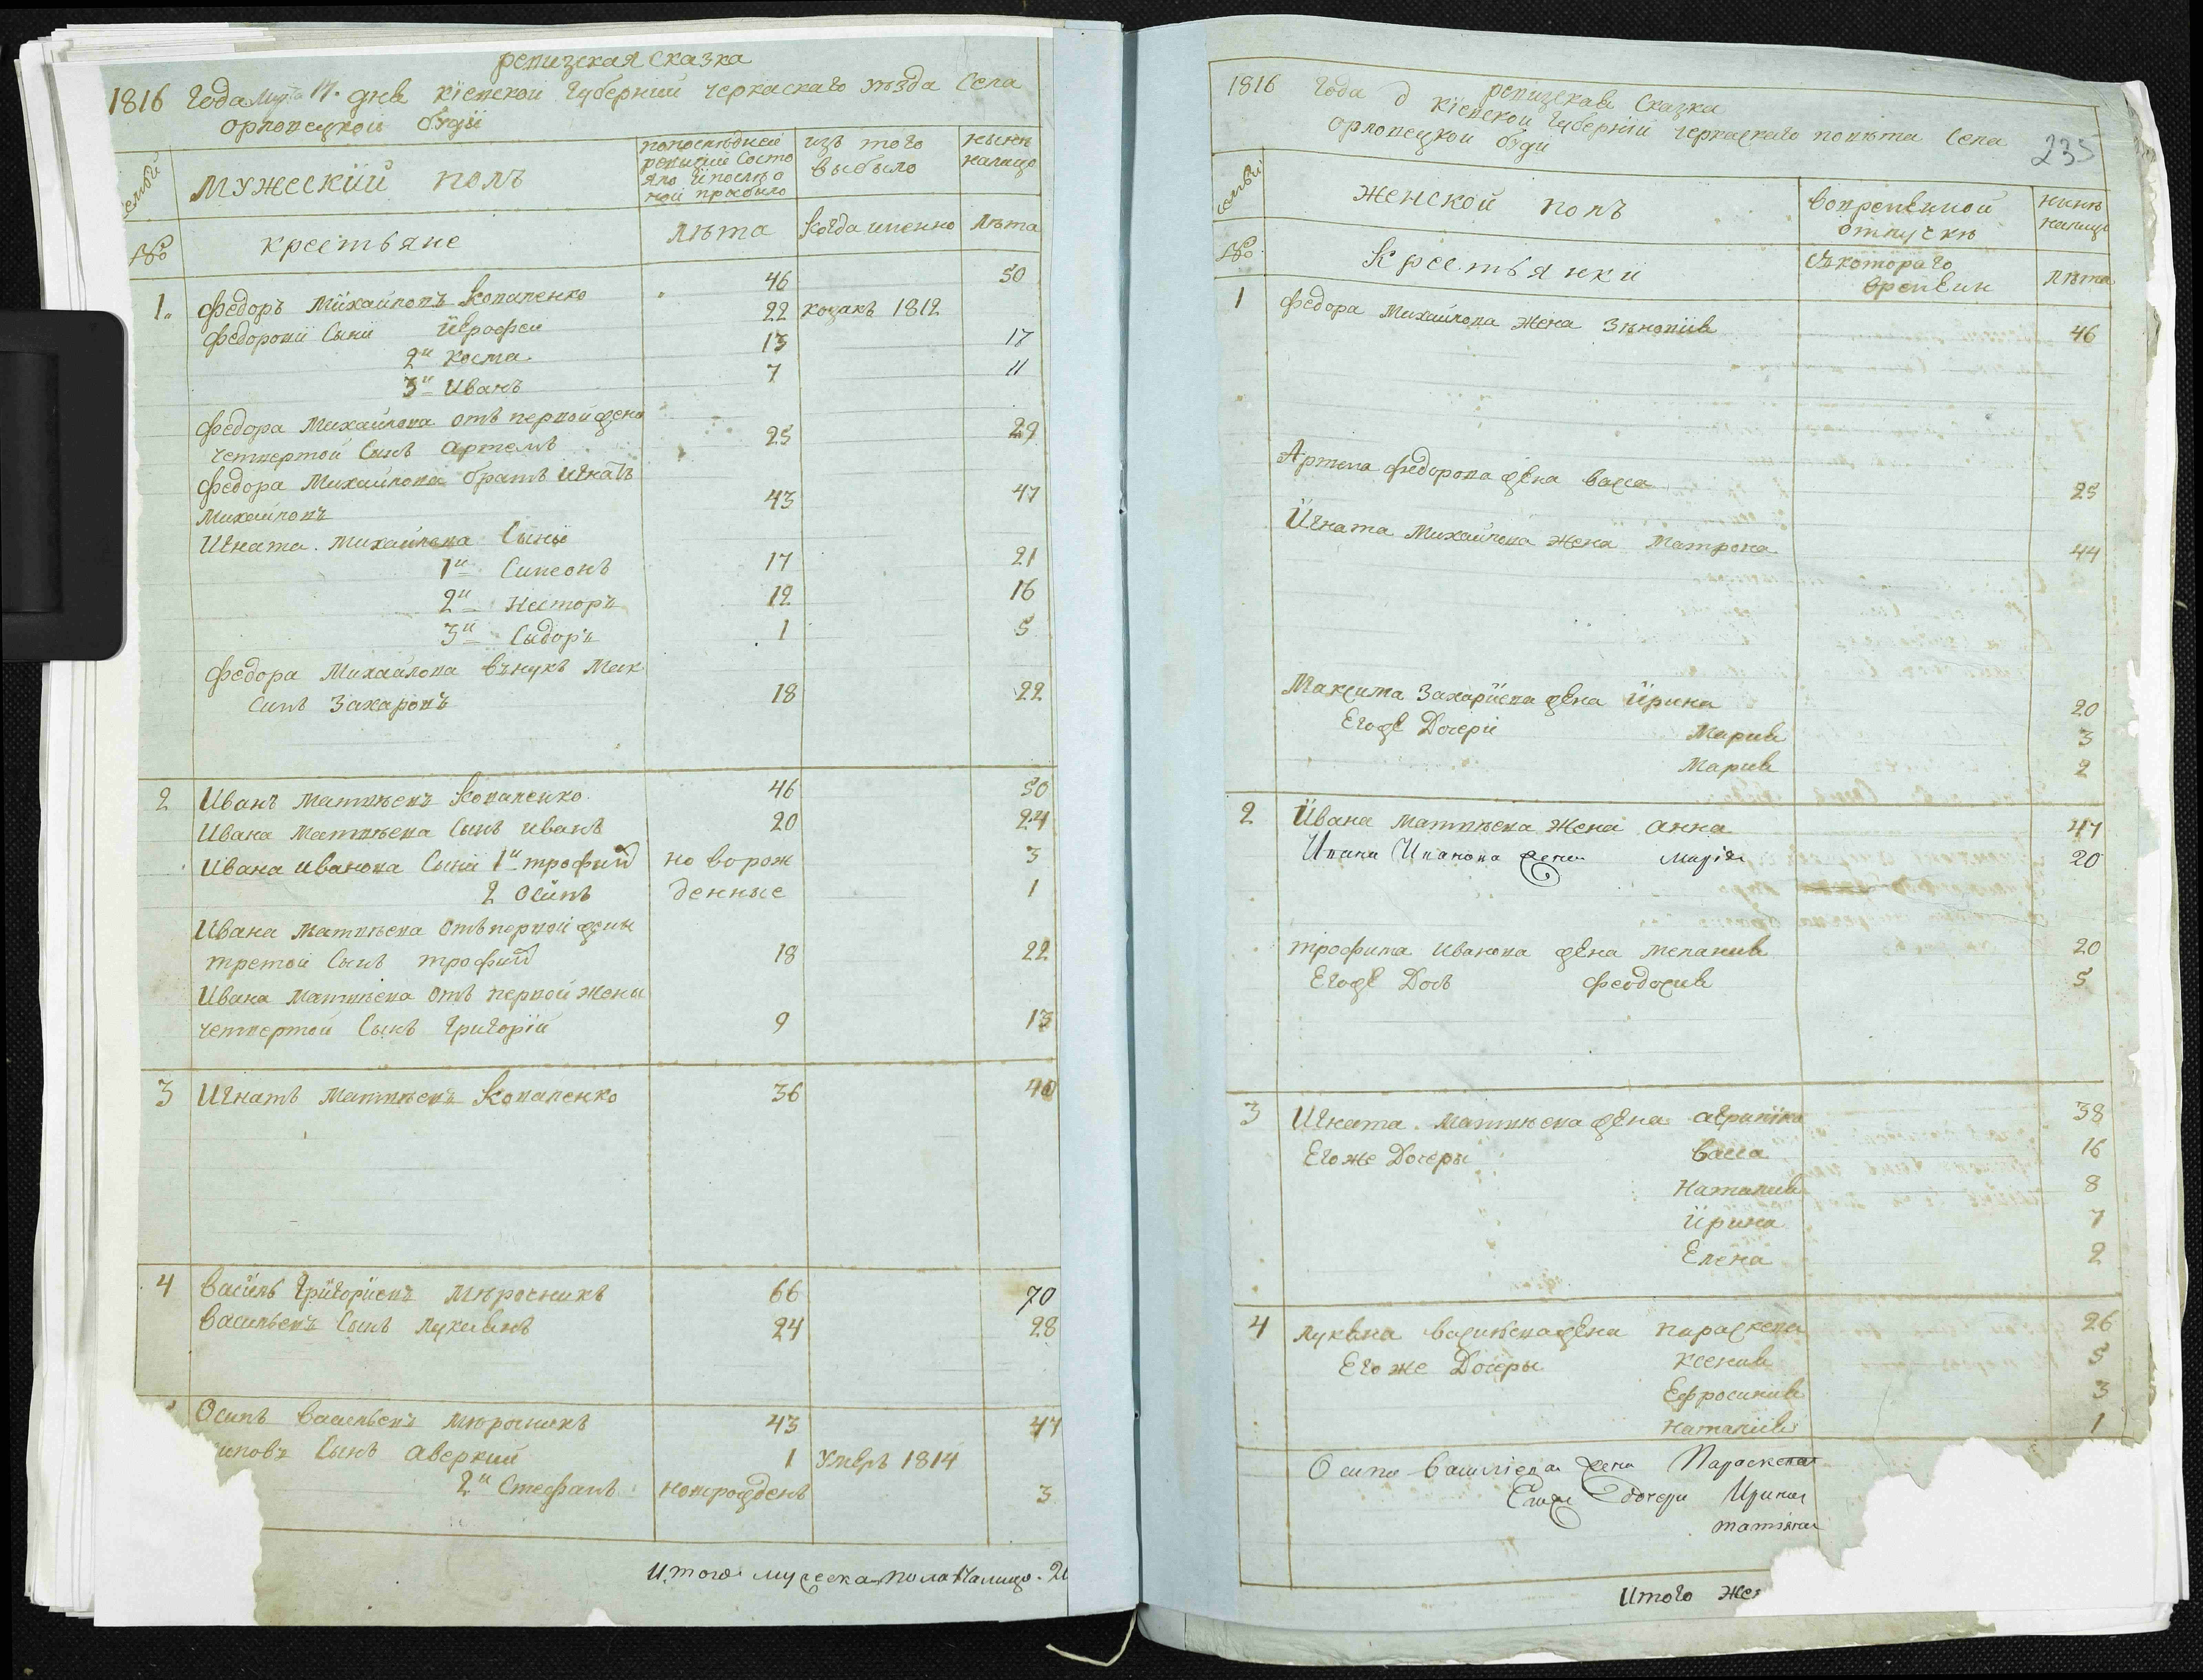 ревизская сказка
1816 Года Марта 14. дня кіевской Губерніи черкаскаго уѣзда Села
орловецкой буди
семьи
мужескій полъ
попослѣдней ревизіи Состояло и послѣ оной прибыло
изъ того выбыло
нынѣ налицо
№
крестьяне
лѣта
когда именно
лѣта
1. федоръ Михаиловъ Коваленко 46 50
федоровы Сыны Іерофеи 22 козакъ 1812
2й Косма 13 17
3й Иванъ 7 11
федора Михаилова отъ первой жены
четвертой Сынъ Артемъ 25 29
федора Михаилова братъ Игнатъ
Михаиловъ 43 47
Игната Михаилова Сыны
1й Симеонъ 17 21
2й Несторъ 12 16
3й Сыдоръ 1 5
федора Михаилова внукъ Мак
симъ Захаровъ 18 22
2 Иванъ Матвѣевъ Коваленко 46 50
Ивана Матвѣева Сынъ иванъ 20 24
Ивана иванова Сыны 1й трофим новорож 3
2 Осипъ денные 1
Ивана Матвѣева отъ первой жены
третой Сынъ трофим 18 22
Ивана Матвѣева отъ первой жены
четвертой Сынъ Григорій 9 13
3 Игнатъ Матвѣевъ Коваленко 36 40
4 Василь Григоріевъ Мирочникъ 66 70
Васильевъ Сынъ Лукьянъ 24 28
Осипъ Васильевъ Мирочникъ 43 47
иповъ Сынъ Аверкий 1 Умеръ 1814
2й Стефанъ новрожденъ 3
Итого мужеска пола Налицо. 2
1816 Года д ревизская Сказка
кіевской Губерніи черкаскаго повѣта Села
орловецкой буди
235
семьи
женской полъ
вовременной отлучкѣ
нынѣ налицо
№
Крестьянки
Скотораго времени
лѣта
1 федора Михаилова жена Зѣновія 46
Артема федорова жена васса 25
Игната Михаилова жена Матрона 44
Максима Захаріева жена Ирина 20
Егоже Дочери Мария 3
Мария 2
2 Ивана Матвѣева жена анна 47
Ивана Иванова жена Марія 20
трофима Иванова жена Мелания 20
Егоже Дочь Феодосия 5
3 Игната Матвѣева жена агрипина 38
Егоже Дочеры васса 16
Наталия 8
Ирина 7
Елена 2
4 Лукяна васильева жена параскева 26
Егоже Дочеры Ксения 5
Ефросиния 3
Наталия 1
Осипа Василіева жена Параскева
Егоже дочери Ирина
татіяна
Итого Жен